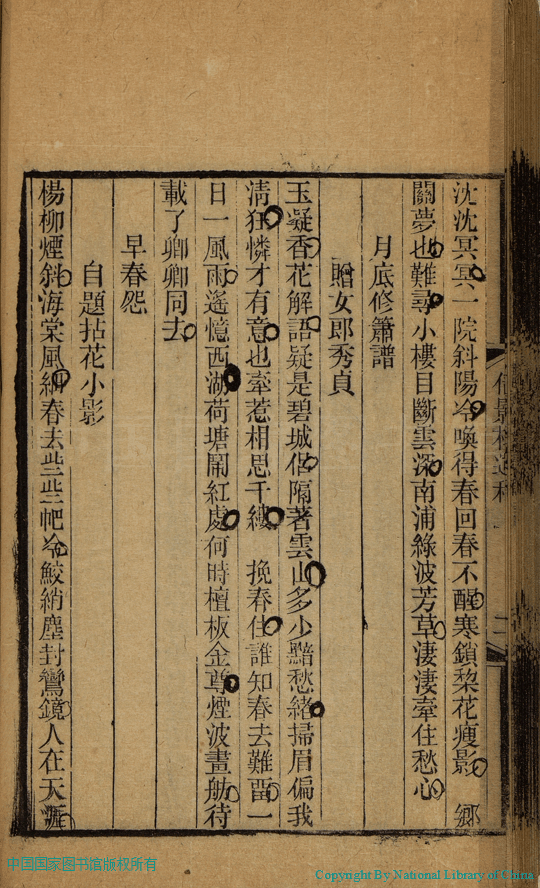 沈沈冥冥一院斜陽冷喚得春回春不醒寒鎖梨花瘦影　鄉
關夢也難尋小樓目斷雲深南浦綠波芳草淒淒牽住愁心
月底修簫譜
贈女郎秀貞
玉凝香花解語疑是碧城侶隔著雲山多少黯愁緒掃眉偏我
淸狂憐才有意也牽惹相思千縷　挽春住誰知春去難畱一
日一風雨遙憶西湖荷塘鬧紅處何時檀板金尊煙波畫舫待
載了卿卿同去
早春怨
自題拈花小影
楊柳煙斜海棠風細春去些些帊冷鮫綃塵封鸞鏡人在天涯
中国国家图书馆版权所有
Copyright By National Library of China